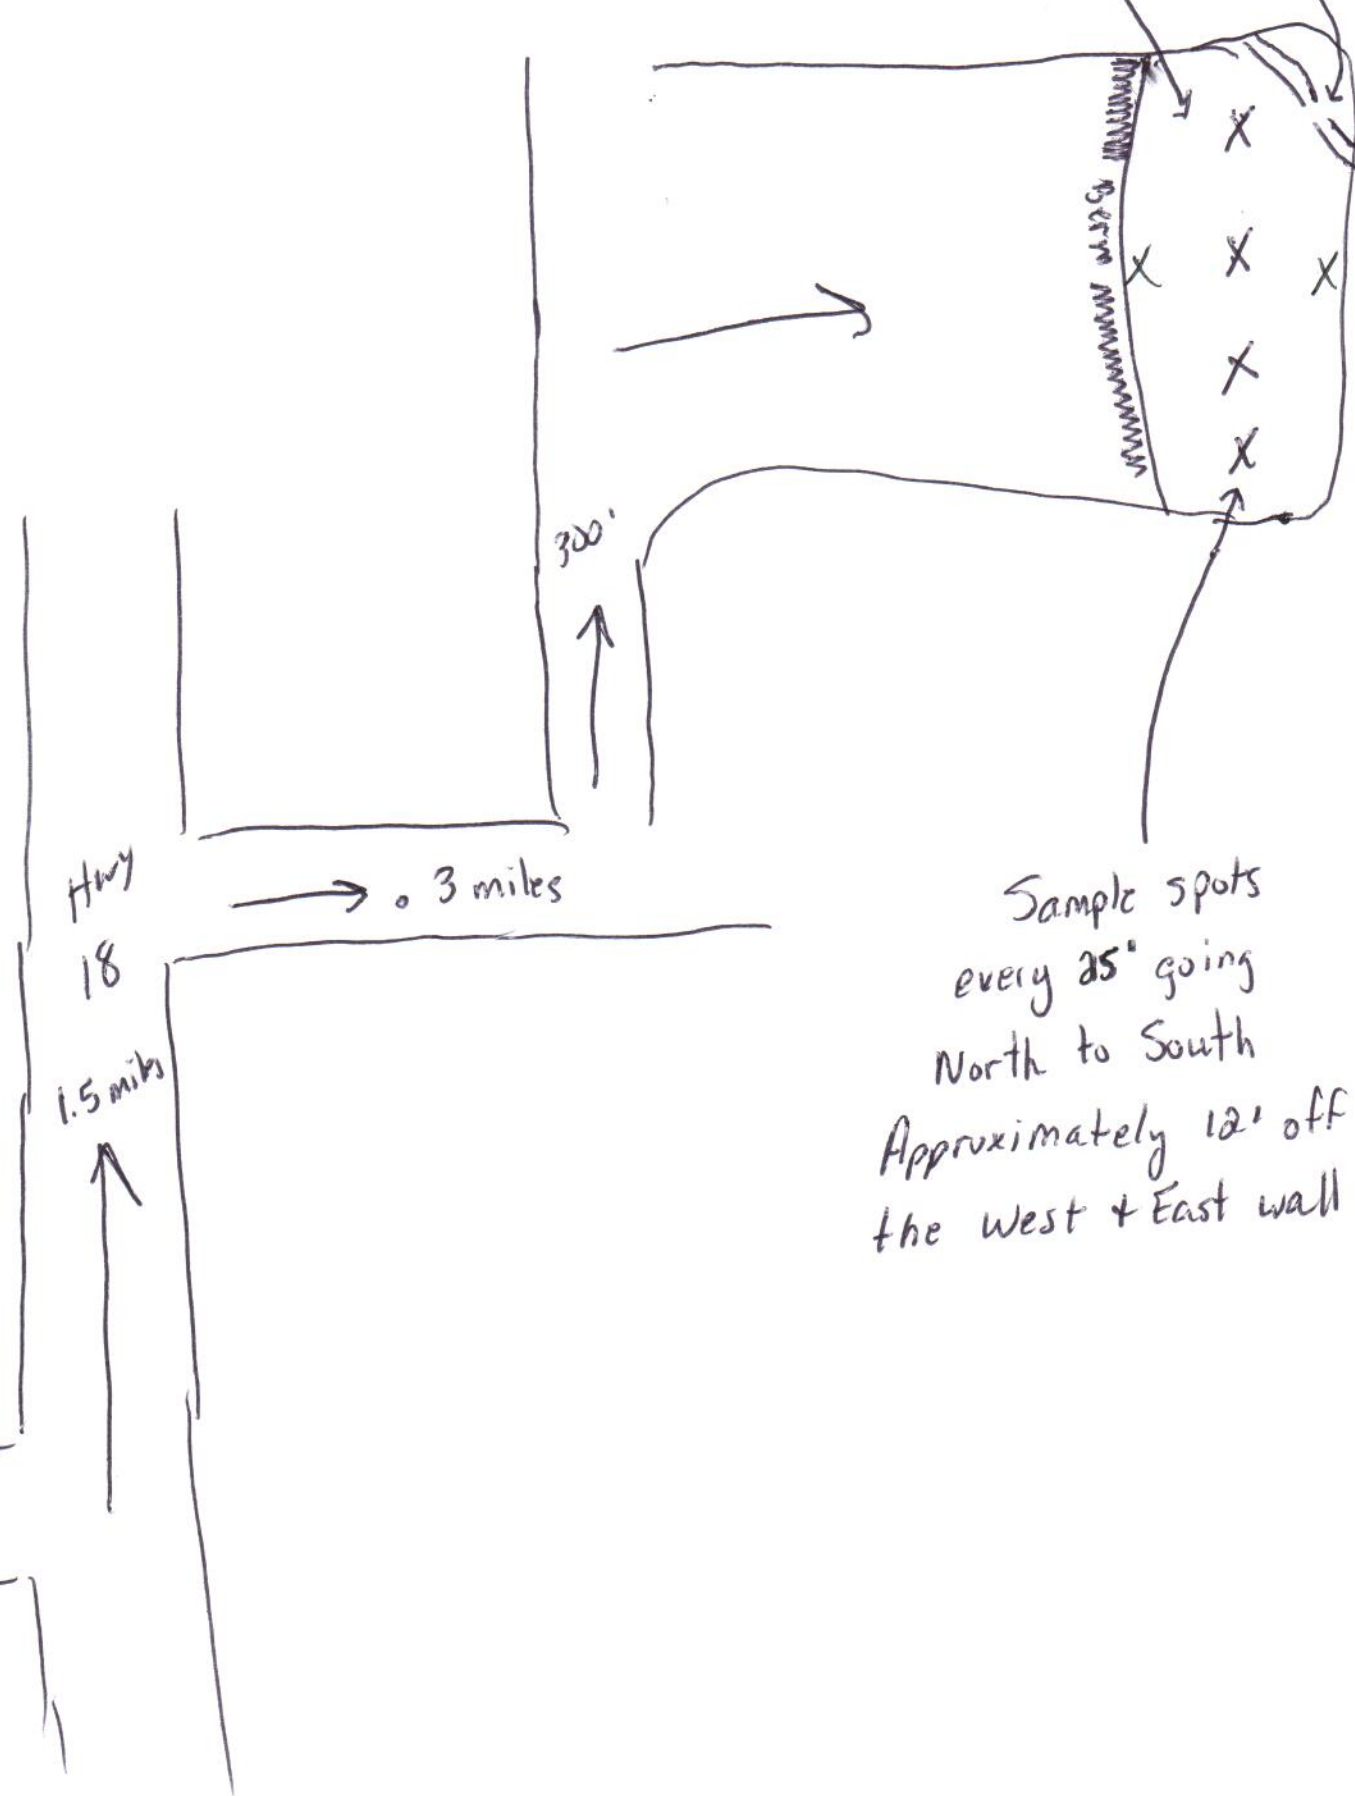 Berm
300'
Hwy
18
. 3 miles
1.5 miles
Sample spots
every 25' going
North to South
Approximately 12' off
the West + East wall
X
X
X
X
X
X